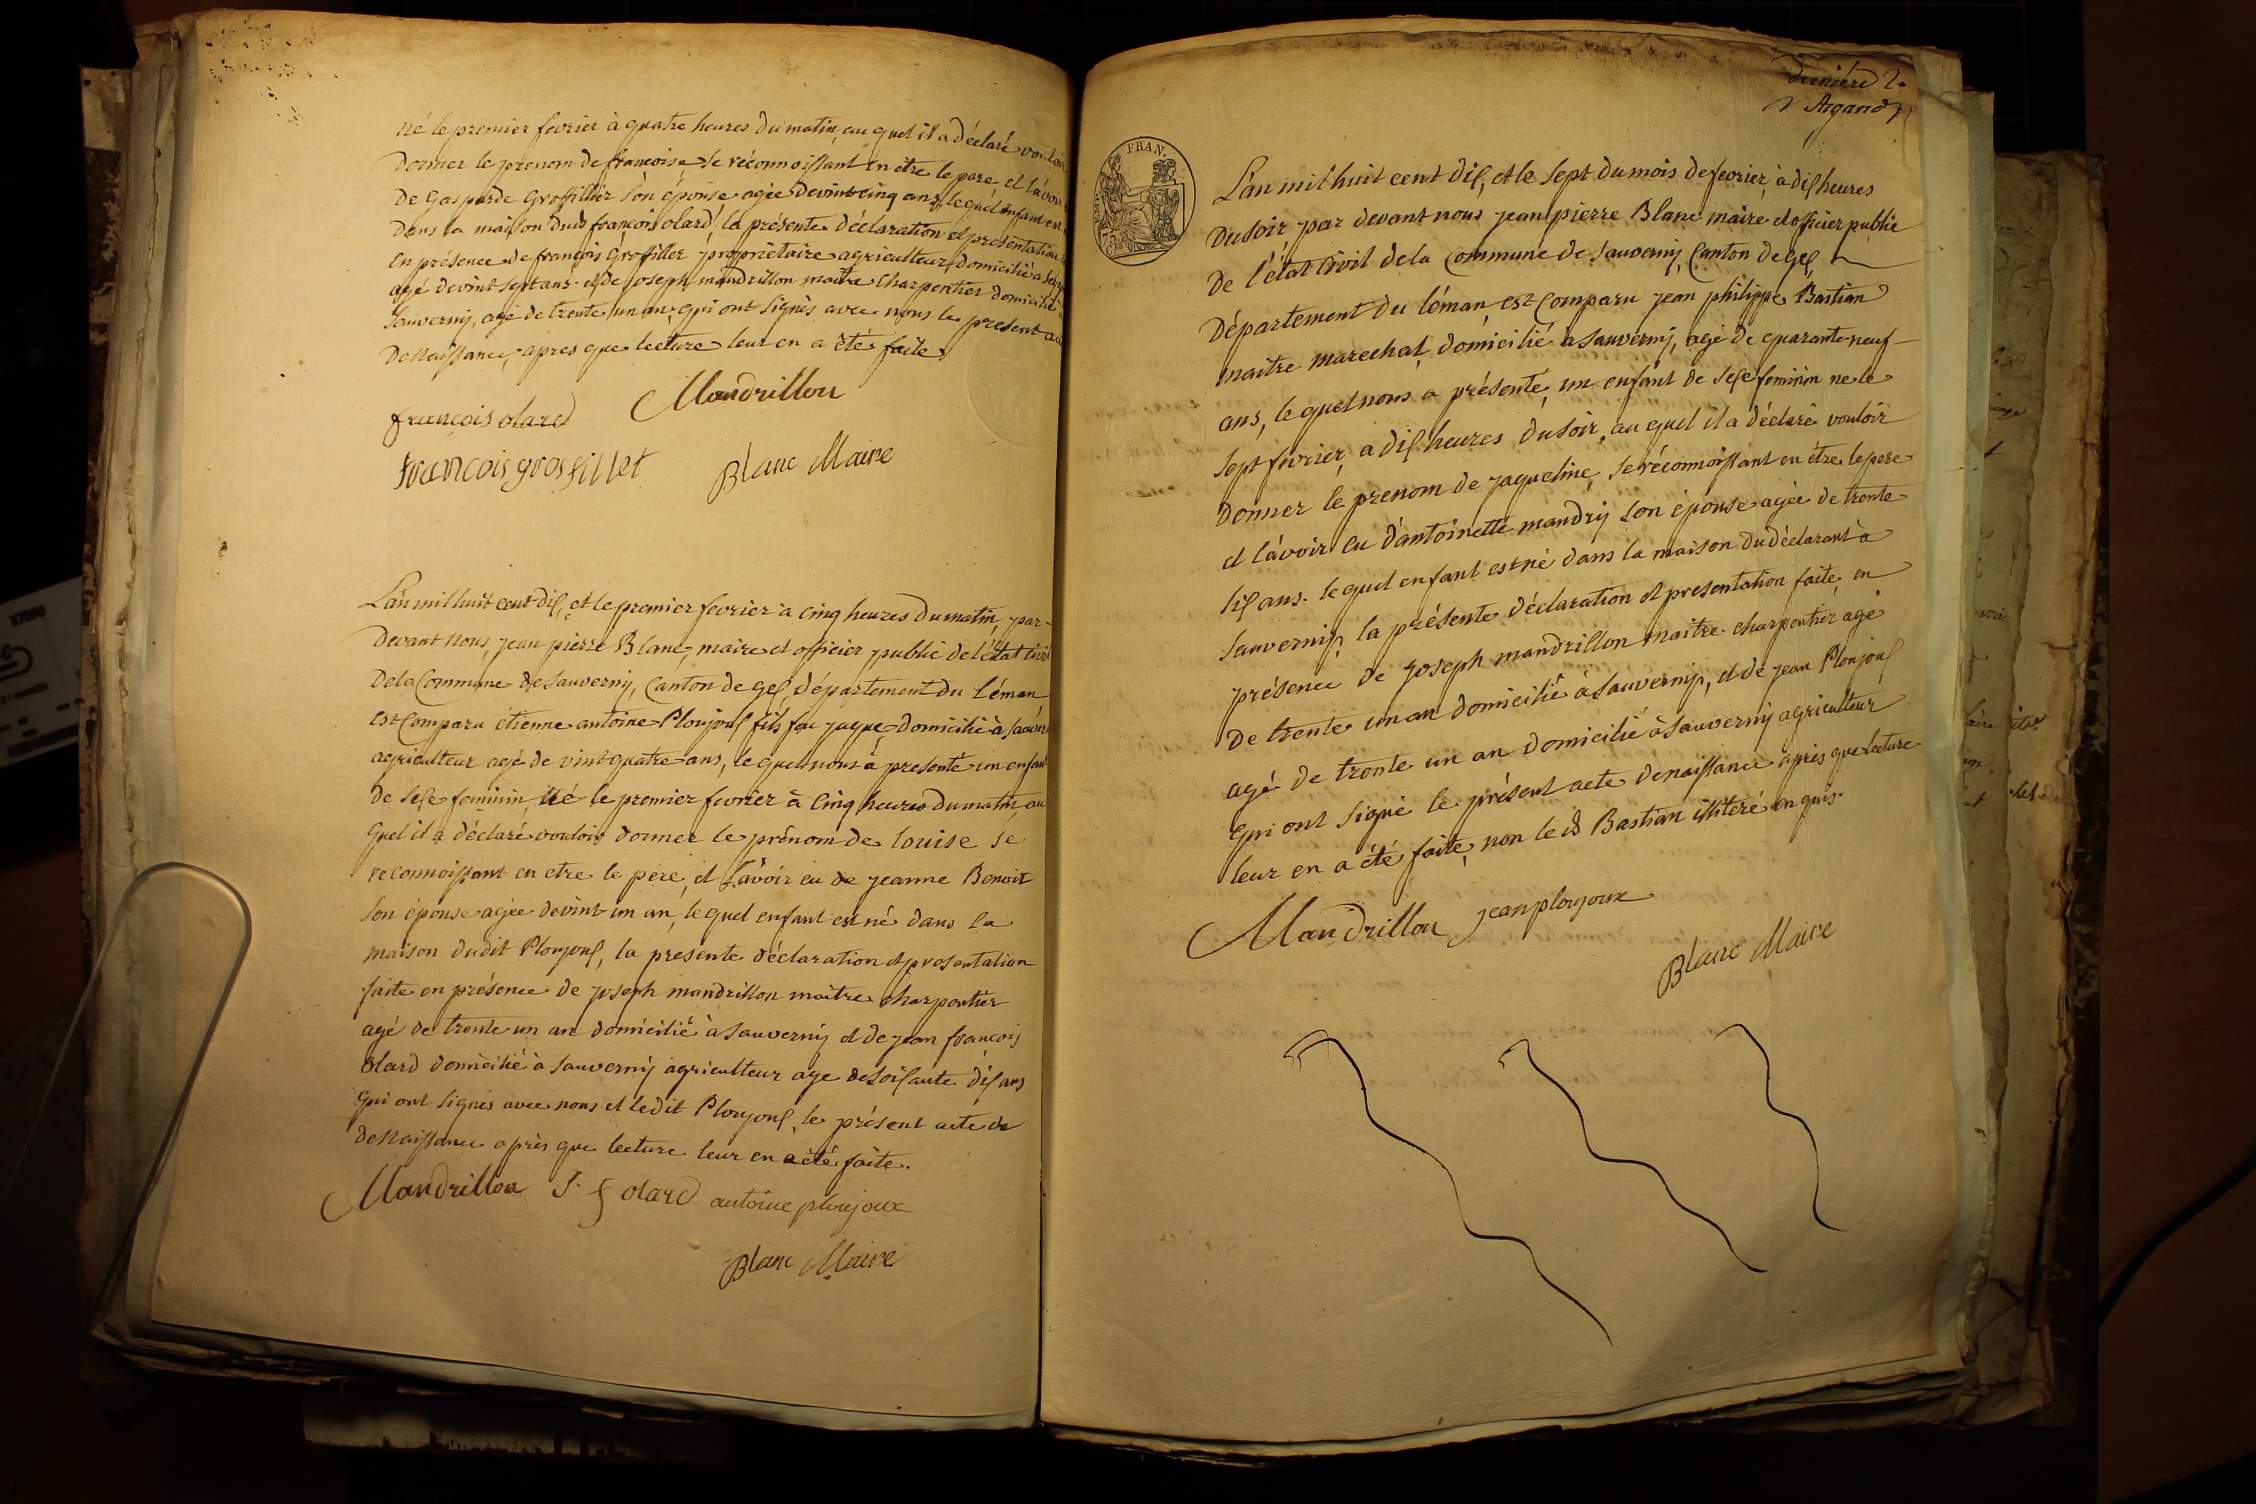 né le premier fevrier à quatre heures du matin, au quel il a déclaré vouloir
donner le prenom de françoise se réconnoissant en être le pere et l'avoir
de Gasparde Grosfillier son épouse agée de vint cinq ans, le quel enfant est
dans la maison dud françois olard, la présente déclaration et présentation
en présence de françois Grosfiller propriétaire agriculteur domicilié à
agé de vint sept ans et de joseph mandrillon maitre charpentier domicilié
Sauverny, agé de trente un an, qui ont signés avec nous le present
de Naissance, apres que lecture leur en a été faite
françois olard Mandrillon
francois grosfillet Blanc Maire
L'an mil huit cent dix, et le premier fevrier à cinq heures du matin, par-
devant nous, jean pierre Blanc, maire et officier public de l'état civil
de la Commune de Sauverny, Canton de gex, département du Léman
est Comparu étienne antoine Ploujoux fils feu jaque domicilié à
agriculteur agé de vint quatre ans, le quel nous à presenté un enfant
de sexe feminin, Né le premier fevrier à cinq heures du matin, au
quel il a déclaré vouloir donner le prénom de louise se
reconnoissant en etre le pere, et l'avoir eu de jeanne Benoit
son épouse agée de vint un an, le quel enfant est né dans la
maison dudit Ploujoux, la presente déclaration et presentation
faite en présence de joseph mandrillon maitre charpentier
agé de trente un an domicilié à Sauverny et de jean françois
olard domicilié à Sauverny agriculteur age de soixante dix ans
qui ont signés avec nous et ledit Ploujoux, le présent acte de
de Naissance après que lecture leur en a été faite.
Mandrillon J. f olard antoine ploujoux
Blanc Maire
dernière 2.
Argand
FRAN.
L'an mil huit cent dix, et le sept du mois de fevrier, à dix heures
du soir par devant nous jean pierre Blanc maire et officier public
de l'état Civil de la Commune de Sauverny, Canton de gex
Département du léman, est Comparu jean philippe Bastian
maitre marechal, domicilié à Sauverny, agé de quarante neuf
ans, le quel nous a présenté, un enfant de sexe feminin né le
sept fevrier, a dix heures du soir, au quel il a déclaré vouloir
donner le prenom de jaqueline, se réconnoissant en être le pere
et l'avoir eu d'antoinette mandry son épouse agée de trente
six ans. le quel enfant est né dans la maison du déclarant à
Sauverny, la présente déclaration et presentation faite, en
présence de joseph mandrillon maitre charpentier agé
de trente un an domicilié à Sauverny, et de jean Ploujoux
agé de trente un an domicilié à Sauverny agriculteur
qui ont signé le présent acte de naissance après que lecture
leur en a été faite, non le d Bastian illiteré enquis.
Mandrillon jean ploujoux
Blanc Maire